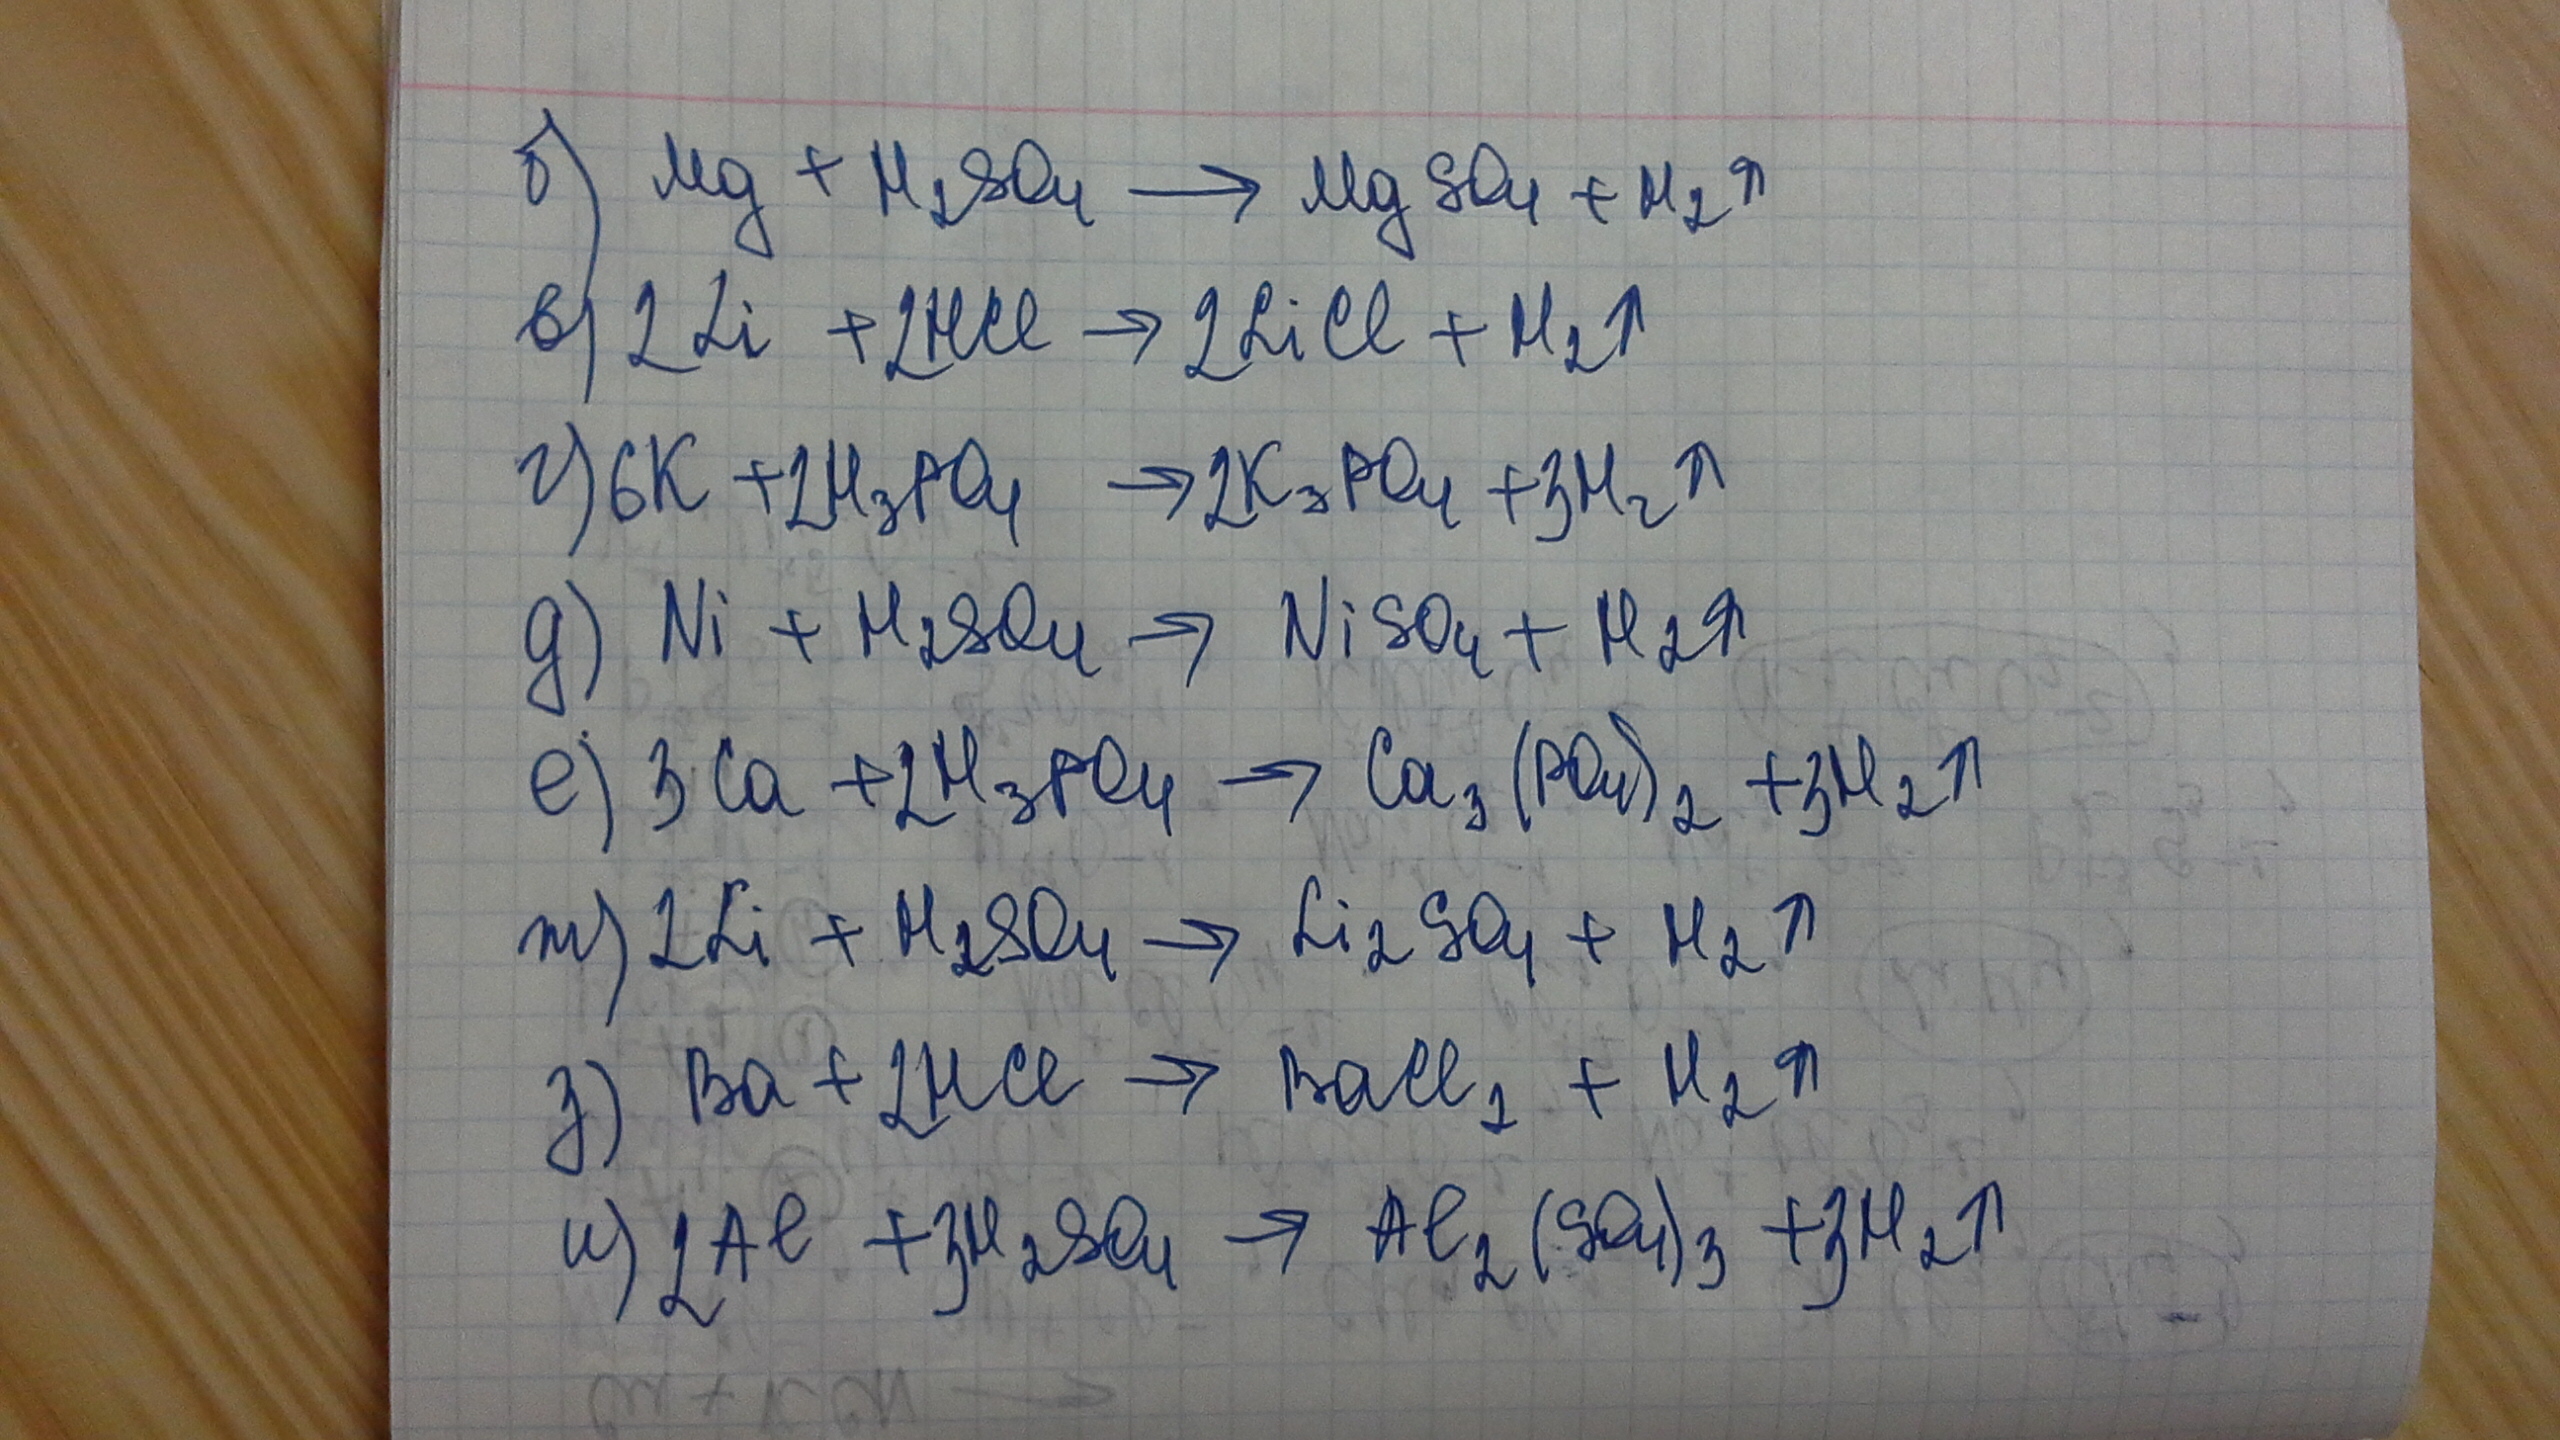 б) Mg + H₂SO₄ → MgSO₄ + H₂↑
в) 2Li + 2HCl → 2LiCl + H₂↑
г) 6K + 2H₃PO₄ → 2K₃PO₄ + 3H₂↑
д) Ni + H₂SO₄ → NiSO₄ + H₂↑
е) 3Ca + 2H₃PO₄ → Ca₃(PO₄)₂ + 3H₂↑
ж) 2Li + H₂SO₄ → Li₂SO₄ + H₂↑
з) Ba + 2HCl → BaCl₂ + H₂↑
и) 2Al + 3H₂SO₄ → Al₂(SO₄)₃ + 3H₂↑